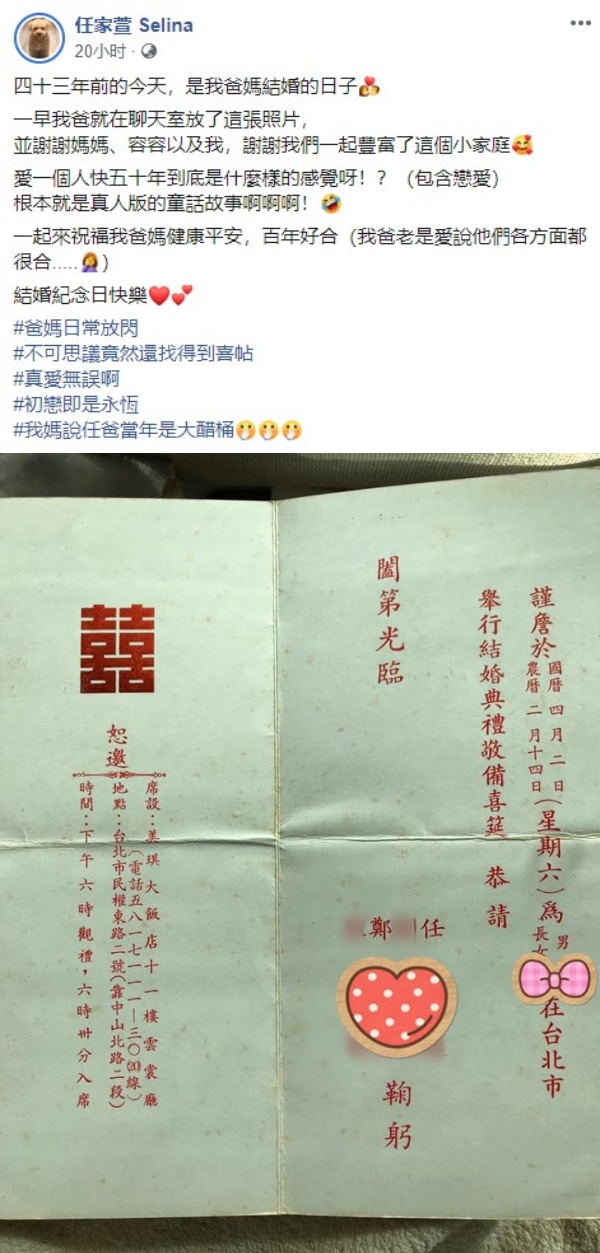 任家萱 Selina
20小时
四十三年前的今天，是我爸媽結婚的日子
一早我爸就在聊天室放了這張照片，
並謝謝媽媽、容容以及我，謝謝我們一起豐富了這個小家庭
愛一個人快五十年到底是什麼樣的感覺呀！？（包含戀愛）
根本就是真人版的童話故事啊啊啊！
一起來祝福我爸媽健康平安，百年好合（我爸老是愛說他們各方面都
很合.....）
結婚紀念日快樂
#爸媽日常放閃
#不可思議竟然還找得到喜帖
#真愛無誤啊
#初戀即是永恆
#我媽說任爸當年是大醋桶
謹詹於
國曆 四月 二 日
農曆 二月十四日
（星期六）為
長
男
女
在台北市
舉行結婚典禮敬備喜筵 恭請
闔第光臨
任
鄭
鞠躬
囍
恕邀
席設：美琪大飯店十一樓雲裳廳
（電話五八一七一一一—三〇⒇線）
地點：台北市民權東路二號（靠中山北路二段）
時間：下午六時觀禮，六時卅分入席